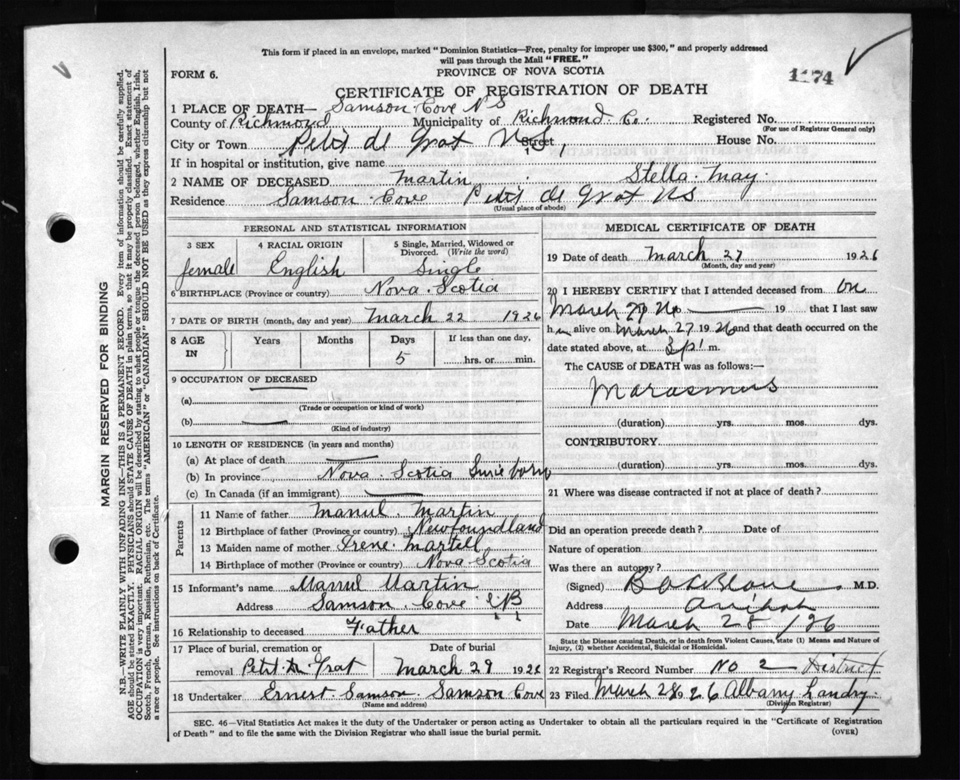 This form if placed in an envelope, marked "Dominion Statistics—Free, penalty for improper use $300," and properly addressed
will pass through the Mail "FREE."
FORM 6.
PROVINCE OF NOVA SCOTIA
1174
CERTIFICATE OF REGISTRATION OF DEATH
1 PLACE OF DEATH— Samson Cove N S
County of Richmond Municipality of Richmond Co. Registered No.
(For use of Registrar General only)
City or Town Petit de Grat N.S. Street House No.
If in hospital or institution, give name
2 NAME OF DECEASED Martin Stella May
Residence Samson Cove Petit de Grat NS
(Usual place of abode)
PERSONAL AND STATISTICAL INFORMATION
3 SEX 4 RACIAL ORIGIN 5 Single, Married, Widowed or
Divorced. (Write the word)
female English Single
6 BIRTHPLACE (Province or country) Nova Scotia
7 DATE OF BIRTH (month, day and year) March 22 1926
8 AGE IN Years Months Days If less than one day,
5 hrs. or min.
9 OCCUPATION OF DECEASED
(a)
(Trade or occupation or kind of work)
(b)
(Kind of industry)
10 LENGTH OF RESIDENCE (in years and months)
(a) At place of death
(b) In province Nova Scotia Since born
(c) In Canada (if an immigrant)
Parents
11 Name of father Manul Martin
12 Birthplace of father (Province or country) Newfoundland
13 Maiden name of mother Irene Martell
14 Birthplace of mother (Province or country) Nova Scotia
15 Informant's name Manul Martin
Address Samson Cove CB
16 Relationship to deceased Father
17 Place of burial, cremation or Date of burial
removal Petit de Grat March 29 1926
18 Undertaker Ernest Samson Samson Cove
(Name and address)
MEDICAL CERTIFICATE OF DEATH
19 Date of death March 27 1926
(Month, day and year)
20 I HEREBY CERTIFY that I attended deceased from on
March 19 that I last saw
h alive on March 27 1926 and that death occurred on
date stated above, at m.
The CAUSE of DEATH was as follows:—
Marasmus
(duration) yrs. mos. dys.
CONTRIBUTORY
(duration) yrs. mos. dys.
21 Where was disease contracted if not at place of death?
Did an operation precede death? Date of
Nature of operation
Was there an autopsy?
(Signed) M.D.
Address Arichat
Date March 28/26
State the Disease causing Death, or in death from Violent Causes, state (1) Means and Nature of
Injury, (2) whether Accidental, Suicidal or Homicidal.
22 Registrar's Record Number No 2 District
23 Filed March 28 1926 Albany Landry
(Division Registrar)
SEC. 46—Vital Statistics Act makes it the duty of the Undertaker or person acting as Undertaker to obtain all the particulars required in the "Certificate of Registration
of Death" and to file the same with the Division Registrar who shall issue the burial permit.
(OVER)
MARGIN RESERVED FOR BINDING
N.B.—WRITE PLAINLY WITH UNFADING INK—THIS IS A PERMANENT RECORD. Every item of information should be carefully supplied.
AGE should be stated EXACTLY. PHYSICIANS should STATE CAUSE OF DEATH in plain terms, so that it may be properly classified. Exact statement of
OCCUPATION is very important. RACIAL ORIGIN will be described by stating to what people or tongue the deceased person belonged, whether English, Irish,
Scotch, French, German, Russian, Ruthenian, etc. The terms "AMERICAN" or "CANADIAN" SHOULD NOT BE USED as they express citizenship but not
a race or people. See instructions on back of Certificate.